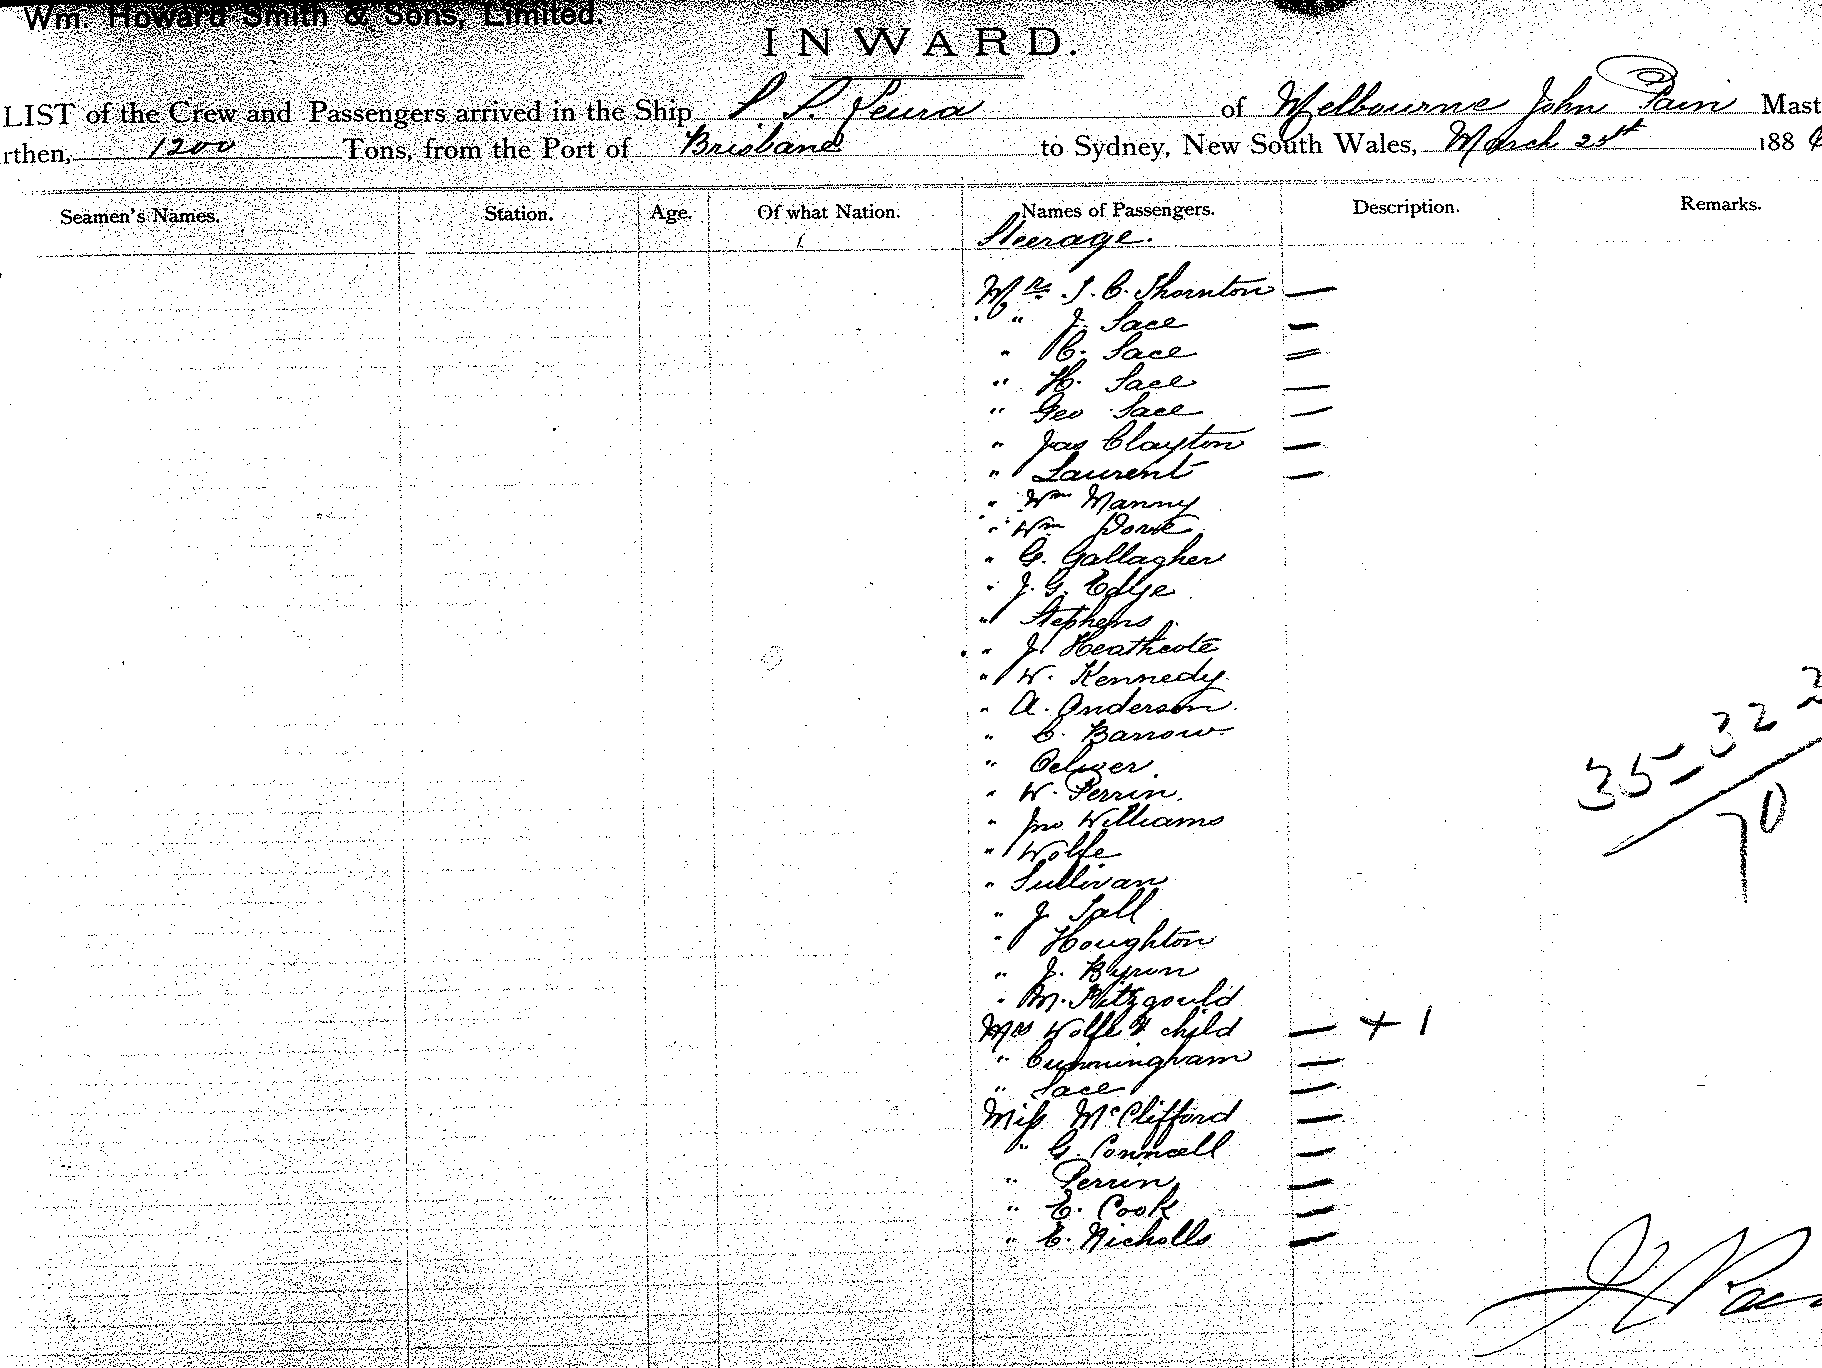 Wm. Howard Smith & Sons, Limited.
INWARD.
LIST of the Crew and Passengers arrived in the Ship S. S. Leura of Melbourne John Pain Mast
rthen, 1200 Tons, from the Port of Brisbane to Sydney, New South Wales, March 25th 188
Seamen's Names. Station. Age. Of what Nation. Names of Passengers. Description. Remarks.
Steerage.
Mr. C. Thornton —
" J. Sace —
" C. Sace —
" H. Sace —
" Geo Sace —
" Jas Clayton —
" Laurent —
" Wm Manny
" Wm
" G. Gallagher
" J. G. Edge
" Stephens
" J. Heathcote
" W. Kennedy
" A. Anderson
" C. Barrow
" Oeliver
" W. Perrin
" Jno Williams
" Wolfe
" Sullivan
" J. Sall
" Houghton
" J. Byron
" M. Fitzgould
Mrs Wolfe & child — + 1
" Cunningham —
" Sace —
Miss McClifford —
" G. Conncell —
" Perrin —
" E. Cook —
" E. Nicholls —
35-32 2
70